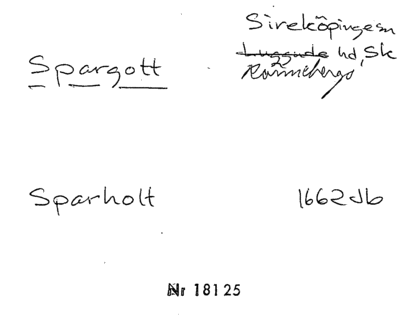 Sireköpinge sn
Spargott
Luggude hd, Sk
Rönnebergs
Sparholt 1662 Jb
Nr 18125